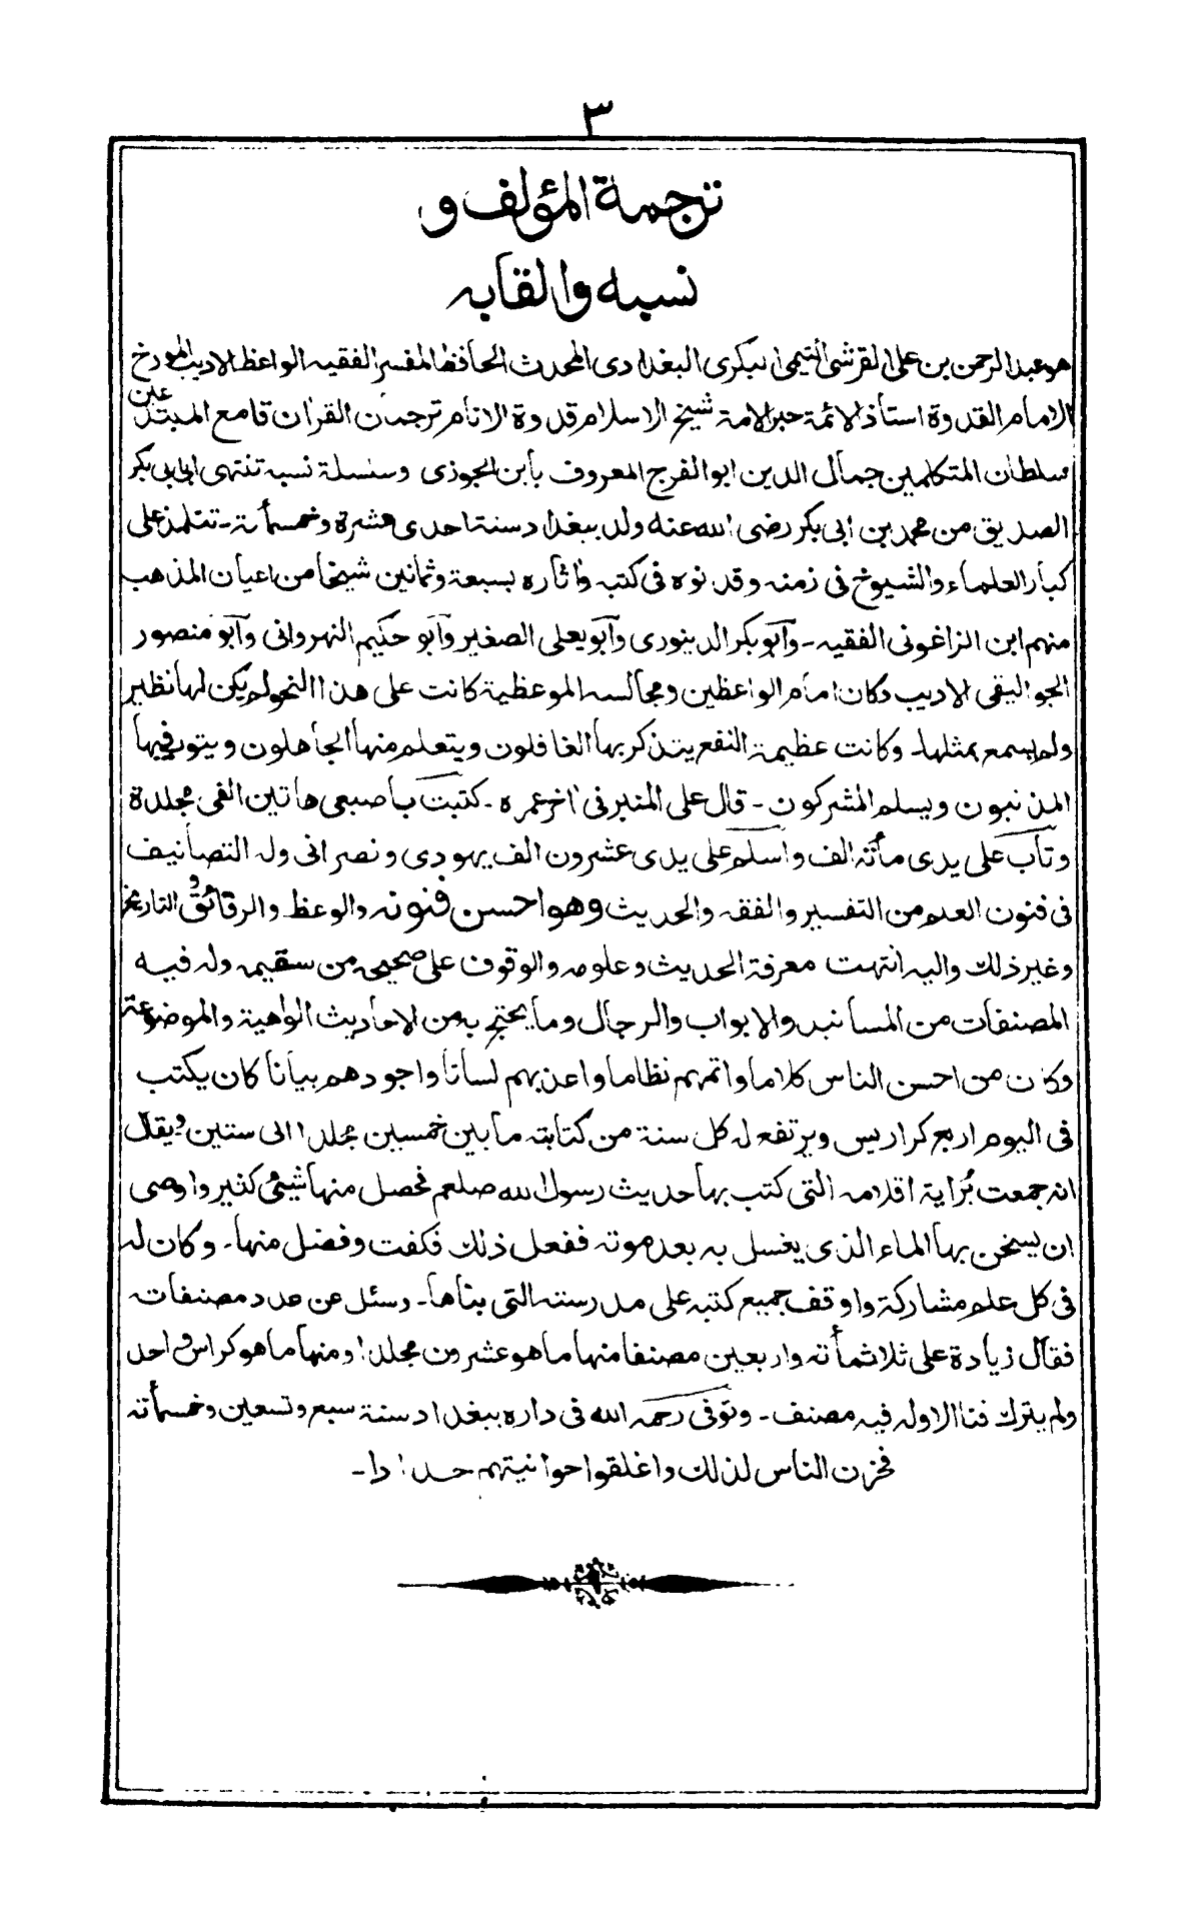 ٣
ترجمة المؤلف و
نسبه والقابه
هو عبد الرحمن بن على القرشى التيمى البكرى البغدادى المحدث الحافظ المفسر الفقيه الواعظ الاديب المورخ
الامام القدوة استاذ الائمة حبر الامة شيخ الاسلام قدوة الانام ترجمان القرأن قامع المبتدعين
سلطان المتكلمين جمال الدين ابو الفرج المعروف بابن الجوزى وسلسلة نسبه تنتهى الى ابى بكر
الصديق من محمد بن ابى بكر رضى الله عنه ولد ببغداد سنة احدى عشرة وخمسمأته - تتلمذ على
كبار العلماء والشيوخ فى زمنه وقد نوه فى كتبه واثاره بسبعة وثمانين شيخا من اعيان المذهب
منهم ابن الزاغونى الفقيه - وابو بكر الدينورى وابو يعلى الصغير وابو حكيم النهروانى وابو منصور
الجواليقى الاديب وكان امام الواعظين ومجالسه الموعظية كانت على هذا النحو لم يكن لها نظير
ولم يسمع بمثلها - وكانت عظيمة النفع يتذكر بها الغافلون ويتعلم منها الجاهلون ويتوب فيها
المذنبون ويسلم المشركون - قال على المنبر فى اخر عمره - كتبت باصبعى هاتين الفى مجلدة
وتاب على يدى مأته الف واسلم على يدى عشرون الف يهودى ونصرانى وله التصانيف
فى فنون العلم من التفسير والفقه والحديث وهو احسن فنونه والوعظ والرقائق والتاريخ
وغير ذلك واليه انتهت معرفة الحديث وعلومه والوقوف على صحيحه من سقيمه وله فيه
المصنفات من المسانيد والابواب والرجال وما يحتج به من الاحاديث الواهية والموضوعة
وكان من احسن الناس كلاما واتمهم نظاما واعذبهم لسانا واجودهم بيانا كان يكتب
فى اليوم اربع كراريس ويرتفع له كل سنة من كتابته ما بين خمسين مجلدا الى ستين ويقال
انه جمعت براية اقلامه التى كتب بها حديث رسول الله صلعم فحصل منها شيئ كثير واوصى
ان يسخن بها الماء الذى يغسل به بعد موته ففعل ذلك فكفت وفضل منها - وكان له
فى كل علم مشاركة واوقف جميع كتبه على مدرسته التى بناها - وسئل عن عدد مصنفاته
فقال زيادة على ثلاثمأته واربعين مصنفا منها ما هو عشرون مجلدا ومنها ما هو كراس واحد
ولم يترك فنا الا وله فيه مصنف - وتوفى رحمه الله فى داره ببغداد سنة سبع وتسعين وخمسمأته
فحزن الناس لذلك واغلقوا حوانيتهم حدادا -